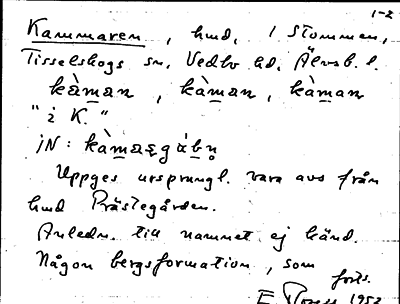 1-2
Kammaren, hmd, i Stommen,
Tisselskogs sn, Vedbo hd, Älvsb. l.
kàman, kàman, kàman
"i K."
iN: kàmaȿgábn̥
Uppges ursprungl. vara avs från
hmd Prästegården.
Anledn. till namnet ej känd.
Någon bergsformation, som
forts.
E. 1952